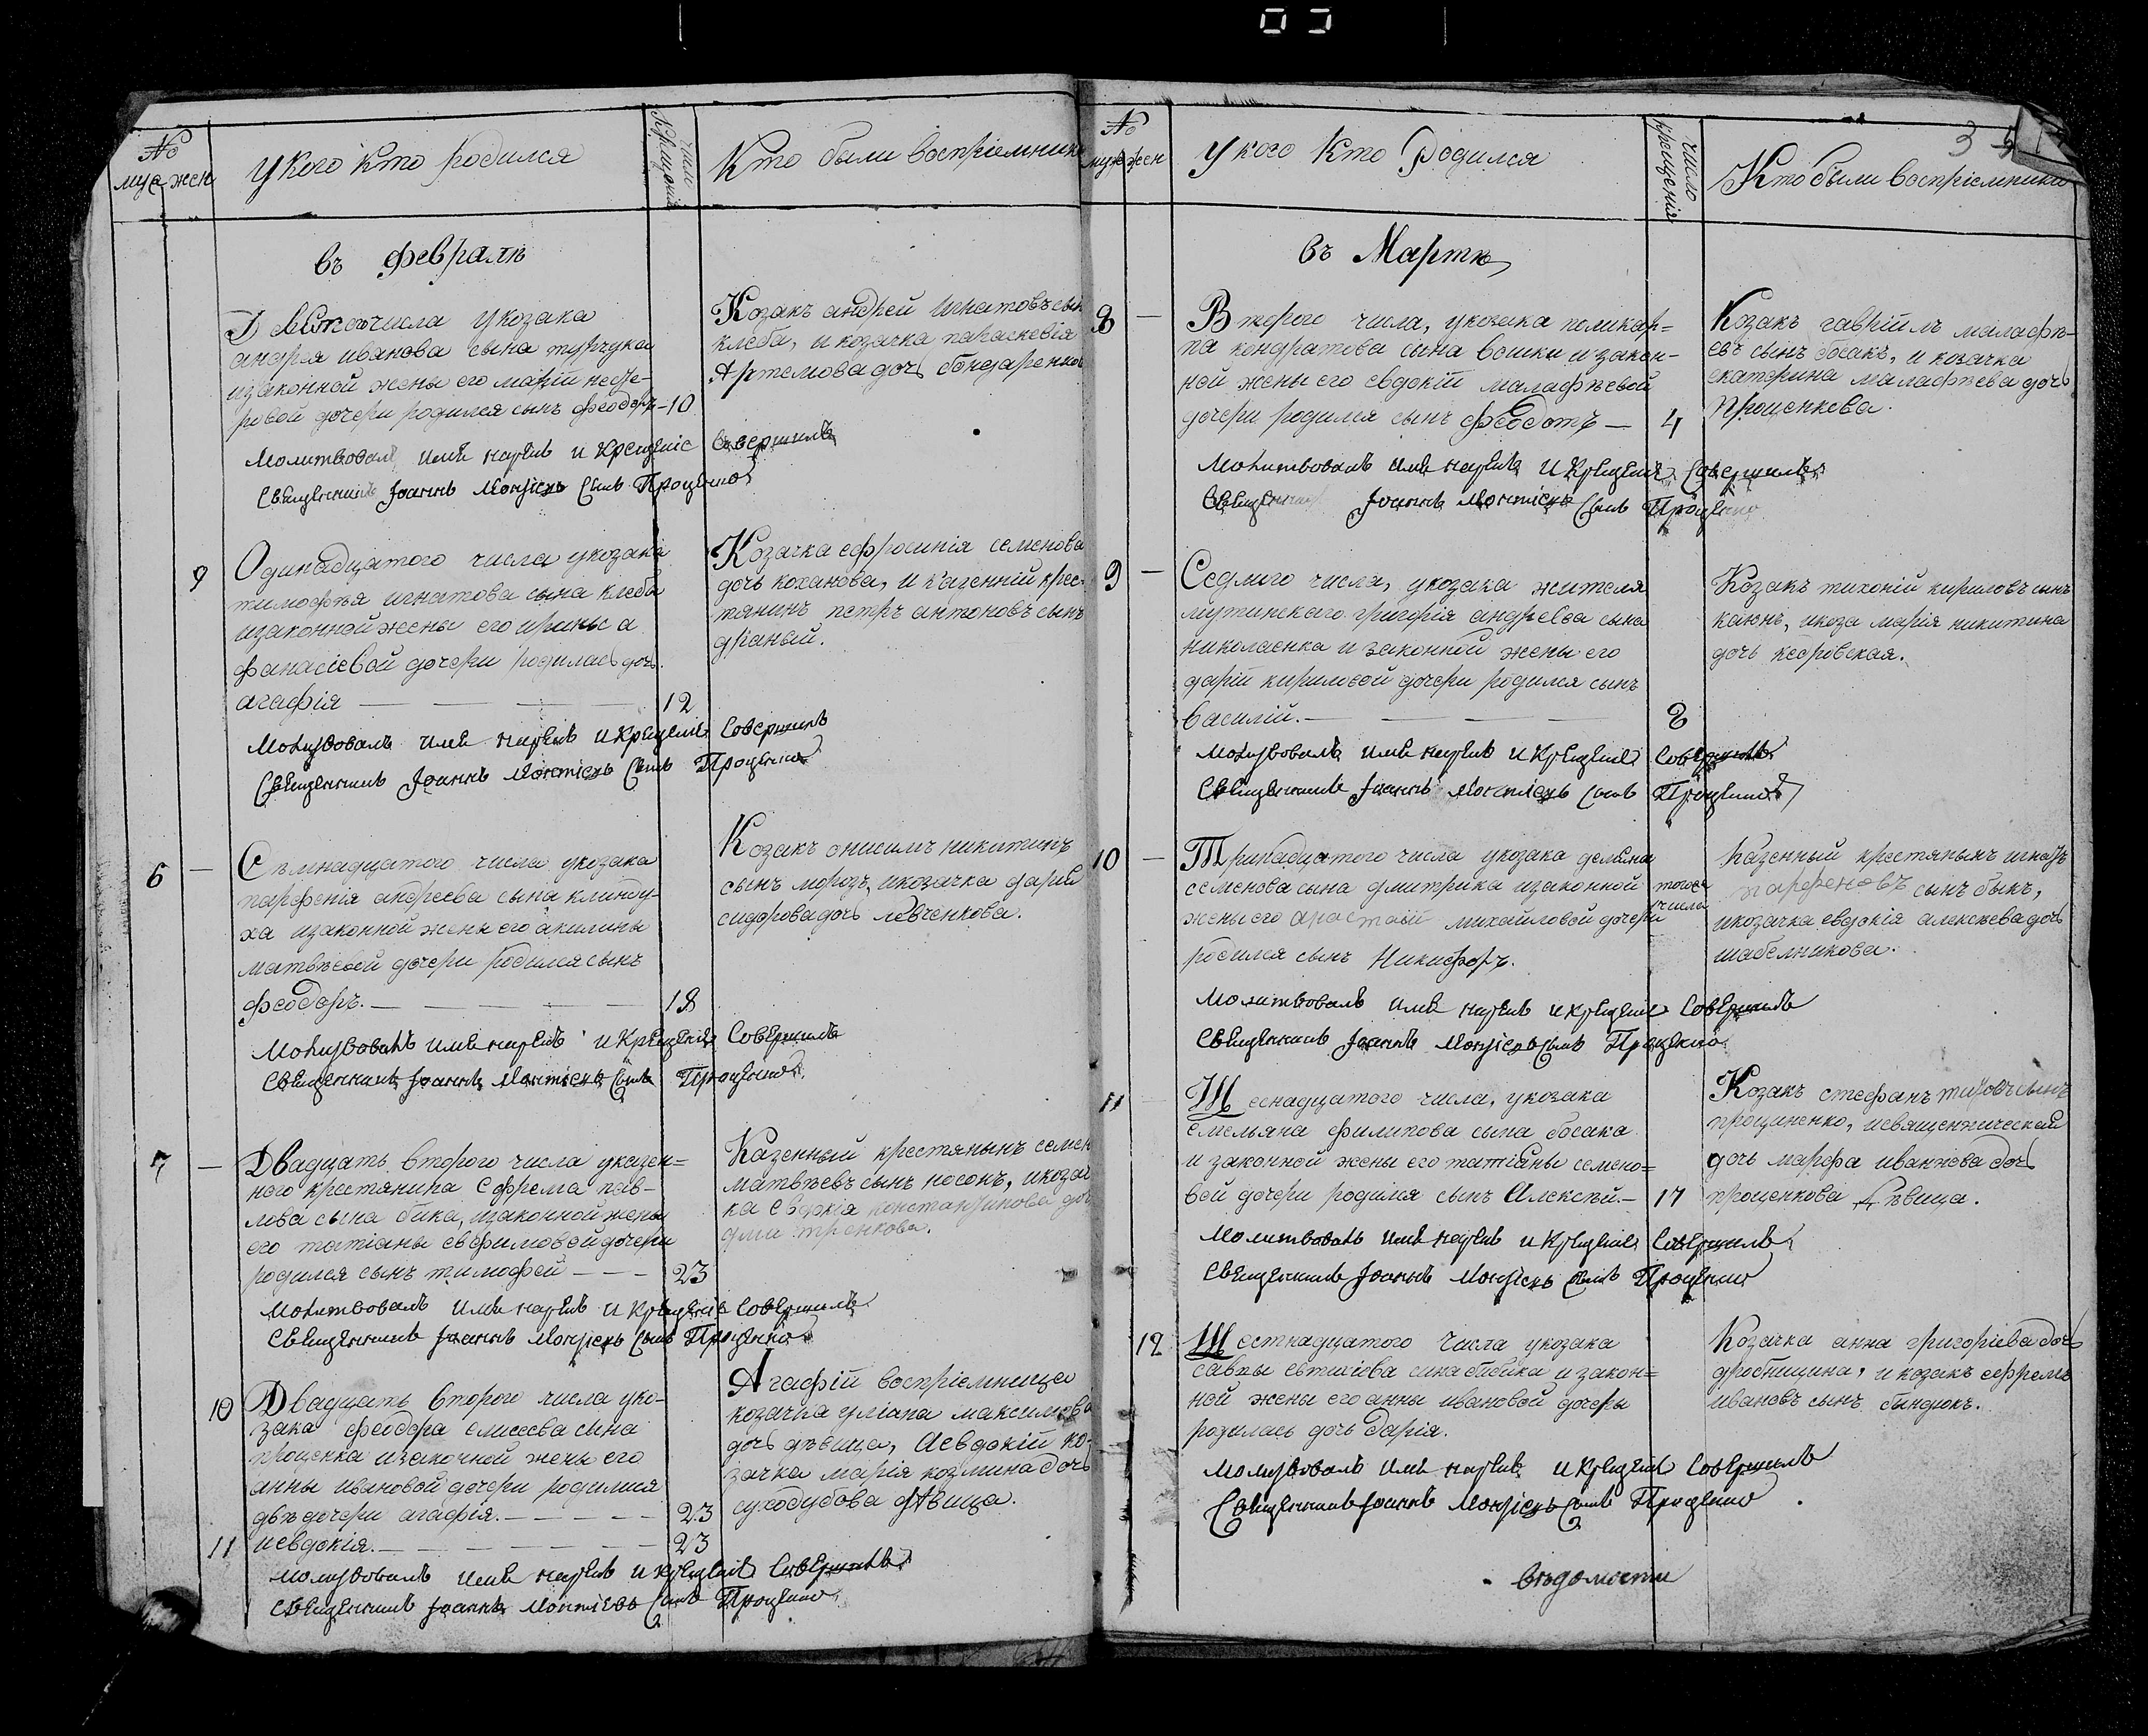 №
муж жен
У кого кто родился
число
крещенія
Кто были воспріемники
въ февралѣ
числа у козака
андрея иванова сына турчука
и законной жены его маріи несте-
ровой дочери родился сынъ феодоръ — 10
Козакъ андрей игнатовъ сын
клеба, и козачка параскевія
Артемова дочь бондаренков
Молитвовалъ имя нареклъ и крещеніе совершилъ
Священникъ Іоаннъ сынъ Проценко
9
Одинадцатого числа у козака
тимофѣя игнатова сына клеба
и законной жены его ирины а
фанасіевой дочери родилась дочь
агафія — — — — 12
Козачка ефросинія семенова
дочь коханова, и казенній крес-
тянинъ петръ антоновъ сынъ
драный.
Молитвовалъ имя нареклъ и крещеніе совершилъ
Священникъ Іоаннъ сынъ Проценко
6 —
Семнадцатого числа у козака
парфенія андреева сына клинду-
ха и законной жены его акилины
матвѣевой дочери родился сынъ
феодоръ. — — — — 18
Козакъ онисимъ никитинъ
сынъ морозъ, и козачка дарія
сидорова дочь левченкова.
Молитвовалъ имя нареклъ и крещеніе совершилъ
Священникъ Іоаннъ сынъ Проценко
7 —
Двадцать второго числа у казен=
ного крестянина ефрема пав-
лова сына бика, и законной жены
его татіаны евфимовой дочери
родился сынъ тимофей — — — 23
Казенный крестянынъ семен
матвѣевъ сынъ носокъ, и козач
ка евдокія константинова доч
дмитренкова.
Молитвовалъ имя нареклъ и крещеніе совершилъ
Священникъ Іоаннъ сынъ Проценко
10
Двадцать второго числа у ко-
зака феодора елисеева сина
проценка и законной жены его
анны ивановой дочери родилися
двѣ дочери агафія. — — — — 23
11 и евдокія. — — — — 23
Агафій воспріемница
козачка уліана максимова
дочь дѣвица, А евдокій ко-
зачка марія козмина дочь
суходубова дѣвица.
Молитвовалъ имя нареклъ и крещеніе совершилъ
Священникъ Іоаннъ сынъ Проценко
№
муж жен
У кого кто Родился
число
крещенія
Кто были воспріемники
3
въ Мартѣ
8 —
Второго числа, у козака поликар=
па кондратова сына вошки и закон-
ной жены его евдокіи малафѣевой
дочери родился сынъ Феодотъ — 4
Козакъ гавріилъ малафѣ-
евъ сынъ босакъ, и козачка
екатерина малафѣева дочь
проценкова.
Молитвовалъ имя нареклъ и крещеніе совершилъ
Священникъ Іоаннъ сынъ Проценко
9 —
Седмого числа, у козака жителя
мутинскаго григорія андреева сына
николаенка и законной жены его
даріи кириловой дочери родился сынъ
василій. — — — — 8
Козакъ тихоній кириловъ сынъ
каюнъ, и коза марія никитина
дочь кедровская.
Молитвовалъ имя нареклъ и крещеніе совершилъ
Священникъ Іоаннъ сынъ Проценко
10 —
Тринадцатого числа у козака демяна
семенова сына дмитрика и законной
жены его михайловой дочери
родился сынъ Никифоръ.
того
числа
Казенный крестянынъ игнатъ
парфеновъ сынъ быкъ,
и козачка евдокія алексѣева дочь
шабелникова.
Молитвовалъ имя нареклъ и крещеніе совершилъ
Священникъ Іоаннъ сынъ Проценко
11
Шеснадцатого числа, у козака
емельяна филипова сына босака
и законной жены его татіаны семено=
вой дочери родился сынъ Алексѣй. — 17
Козакъ стефанъ титовъ сынъ
прощиненко, и священническая
дочь марфа иванова дочь
проценкова дѣвица.
Молитвовалъ имя нареклъ и крещеніе совершилъ
Священникъ Іоаннъ сынъ Проценко
12
Шестнадцатого числа у козака
савы евтигіева сина бибика и закон=
ной жены его анны ивановой дочеры
родилась дочь дарія.
Козачка анна григоріева дочь
дробницина, и козакъ ефремъ
ивановъ сынъ биндюкъ.
Молитвовалъ имя нареклъ и крещеніе совершилъ
Священникъ Іоаннъ сынъ Проценко
вѣдомости